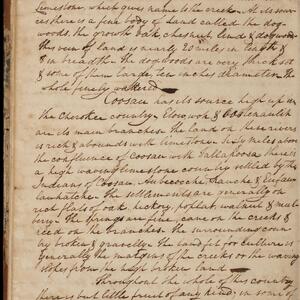 limestone, which gives name to the creek. At its sour-
ces there is a fine body of land called the dog-
woods, the growth oak, chesnut, lind & dogwood.
This vein of land is nearly 20 miles in length &
8 in breadth. The dogwoods are very thick set
& some of them large, ten inches diameter. The
whole finely watered.
Coosau has its source high up in
the Cherokee country. Etowwoh & Oostenaulih
are its main branches. The land on these rivers
is rich & abounds with limestone. Sixty miles above
the confluence of Coosau with Tallapoosa there is
a high waving limestone country settled by the
Indians of Coosau, Aubecooche, Nauche & Eufau-
lauhatche. The settlements are generally on
rich flats of oak, hickory, poplar, walnut & mul-
berry. The springs are fine, cane on the creeks &
reed on the branches. The surrounding coun-
try broken & gravelly. The land fit for culture is
generally the margins of the creeks or the waving
slopes from the high broken land.
Throughout the whole of this country
there is but little fruit of any kind, in some of